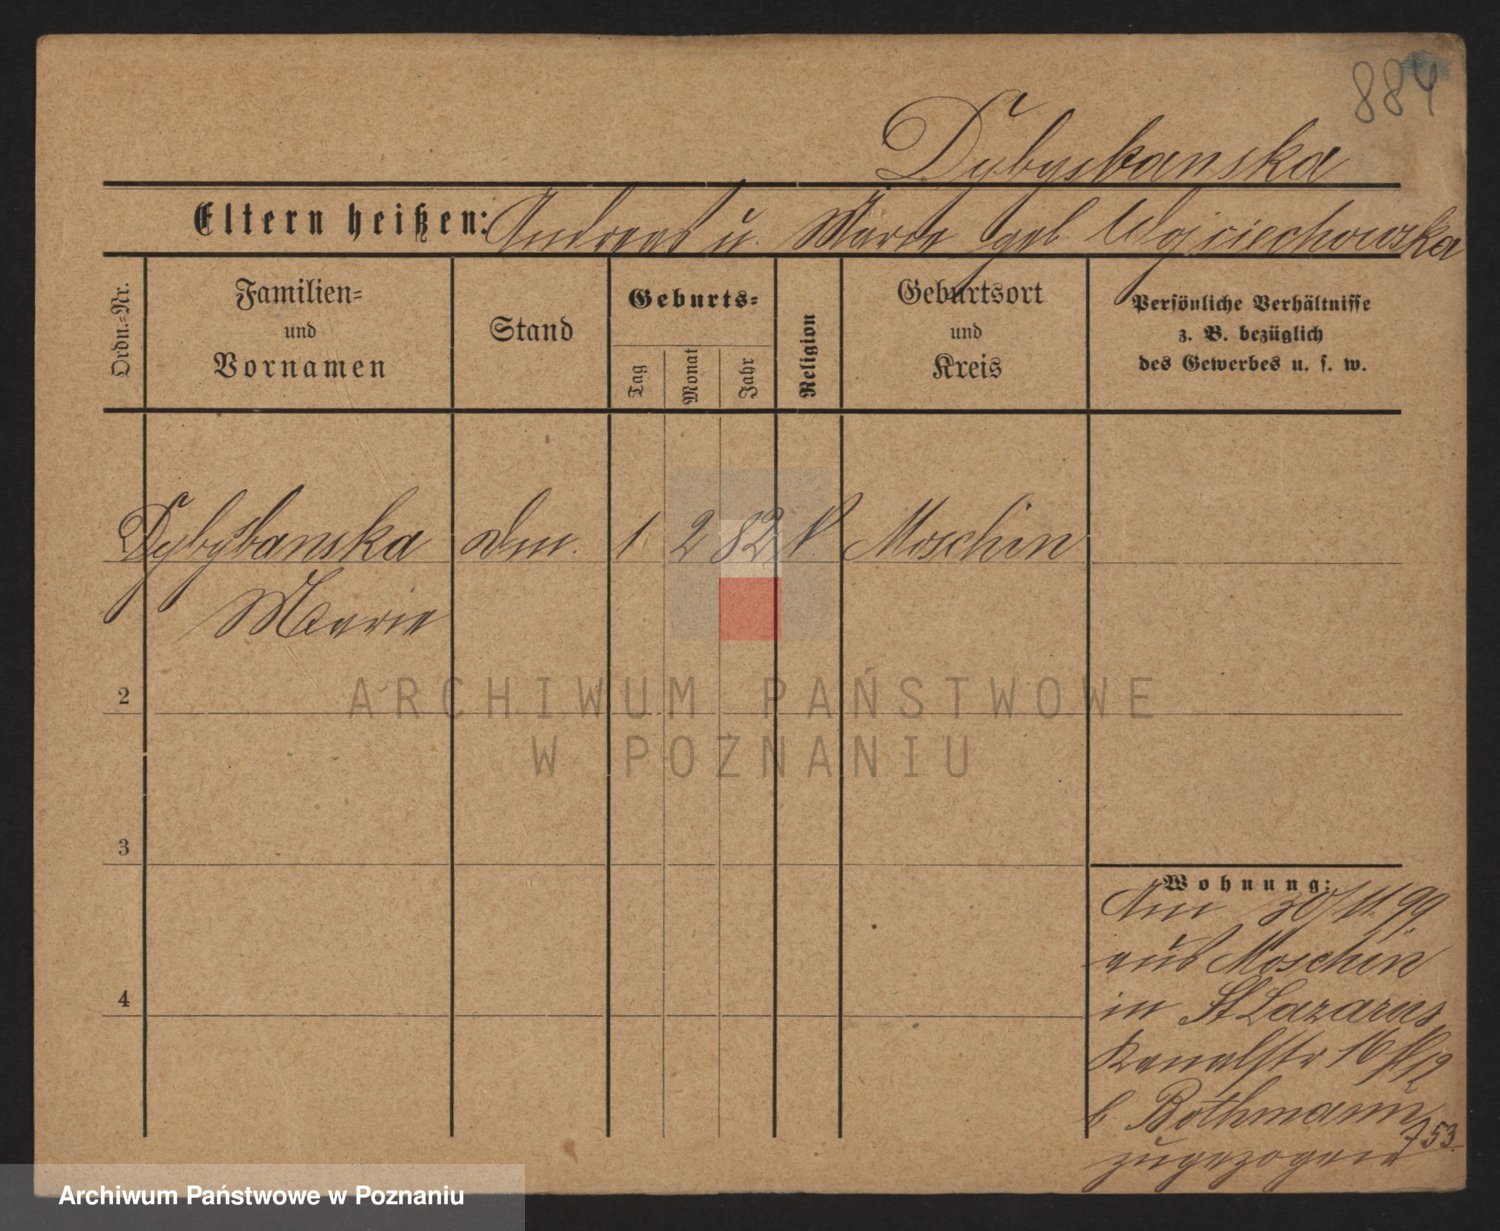 884
Dybysbanska
Eltern heißen: Andreas u. Marie geb. Wojciechowska
Ordn.-Nr.
Familien-
und
Vornamen
Stand
Geburts-
Tag
Monat
Jahr
Religion
Geburtsort
und
Kreis
Persönliche Verhältnisse
z. B. bezüglich
des Gewerbes u. s. w.
Dybysbanska 1 2 82 Moschin
Marie
2
ARCHIWUM PAŃSTWOWE
W POZNANIU
3
Wohnung:
Am 30/11.99
aus Moschin
4
in St Lazarus
Kanalstr 16
b. Bothmann
zugezogen
753
Archiwum Państwowe w Poznaniu